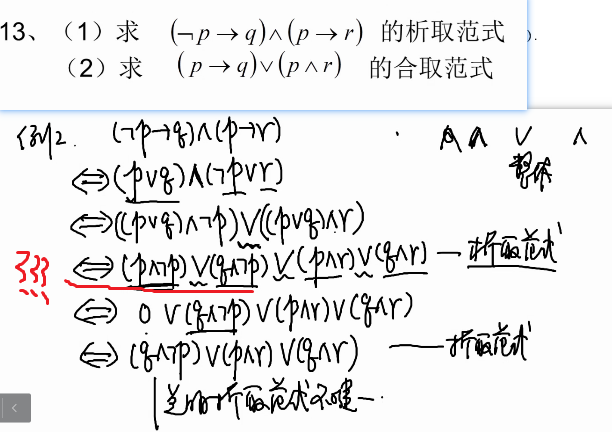 13、（1）求 (¬p→q)∧(p→r) 的析取范式 ).
（2）求 (p→q)∨(p∧r) 的合取范式
例2. (¬p→q)∧(p→r) · ∧ ∧ ∨ ∧
整体
⇔(p∨q)∧(¬p∨r)
⇔((p∨q)∧¬p)∨((p∨q)∧r)
⇔(p∧¬p)∨(q∧¬p)∨(p∧r)∨(q∧r) — 析取范式
⇔ 0∨(q∧¬p)∨(p∧r)∨(q∧r)
⇔ (q∧¬p)∨(p∧r)∨(q∧r) —— 析取范式
析取范式不唯一.